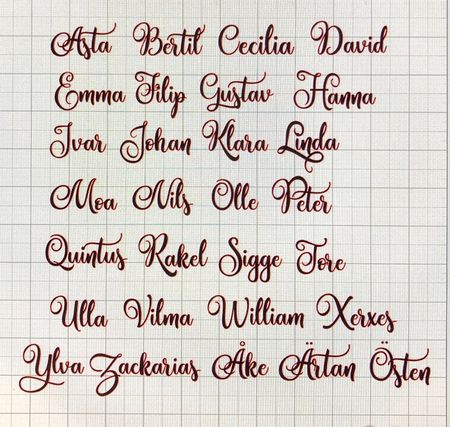 Asta Bertil Cecilia David
Emma Filip Gustav Hanna
Ivar Johan Klara Linda
Moa Nils Olle Peter
Quintus Rakel Sigge Tore
Ulla Vilma William Xerxes
Ylva Zackarias Åke Ärtan Östen